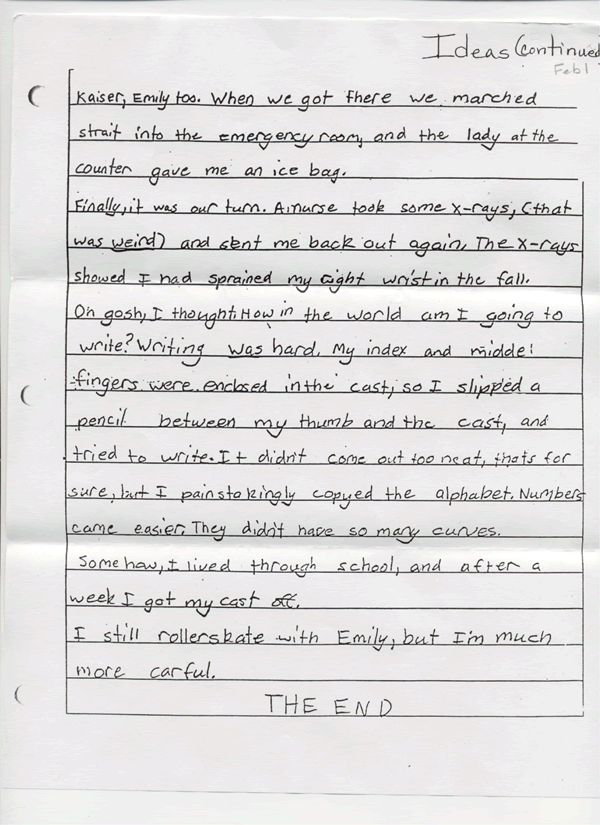 Ideas (continued)
Feb 1
Kaiser, Emily too. When we got there we marched
strait into the emergency room, and the lady at the
counter gave me an ice bag.
Finally, it was our turn. A nurse took some x-rays, (that
was weird) and sent me back out again. The x-rays
showed I had sprained my right wrist in the fall.
Oh gosh, I thought. How in the world am I going to
write? Writing was hard. My index and middle
fingers were enclosed in the cast, so I slipped a
pencil between my thumb and the cast, and
tried to write. It didn't come out too neat, thats for
sure, but I painstakingly copyed the alphabet. Numbers
came easier. They didn't have so many curves.
Somehow, I lived through school, and after a
week I got my cast off.
I still rollerskate with Emily, but I'm much
more carful.
THE END